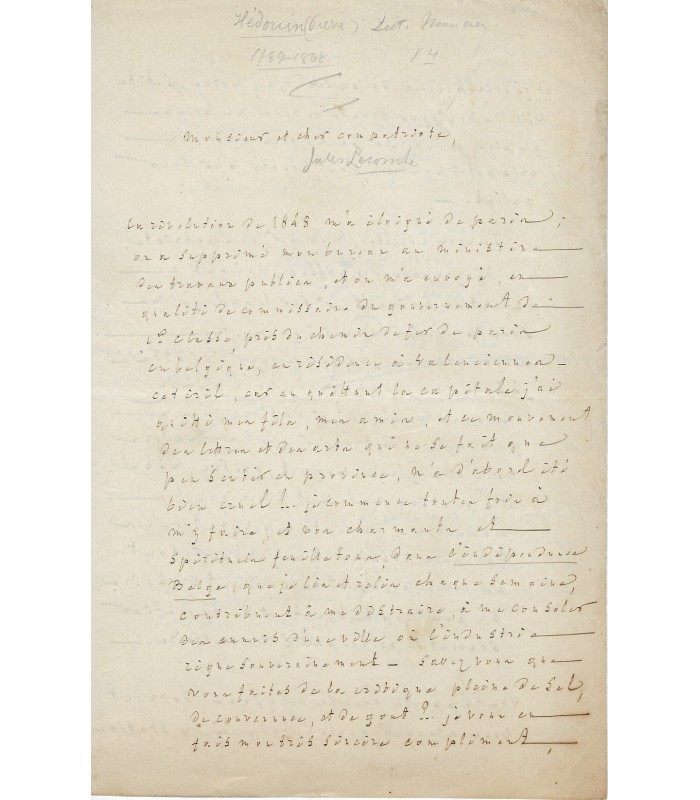 Hédouin (Pierre) Dict.
1789-1868
Monsieur et cher compatriote,
Jules Lecomte
La révolution de 1848 m'a éloigné de paris;
on a supprimé mon bureau au ministère
des travaux publics, et on m'a envoyé, en
qualité de commissaire du gouvernement de
1re classe, près du chemin de fer de paris
en belgique, en résidence à Valenciennes –
cet exil, car en quittant la capitale j'ai
quitté mes fils, mes amis, et ce mouvement
des lettres et des arts qui ne se fait que
peu sentir en province, n'a d'abord été
bien cruel !.. je commence toutefois à
m'y faire, et vos charmants et
spirituels feuilletons, dans l'indépendance
Belge, que je lis et relis chaque semaine,
contribuent à me distraire, à me consoler
des ennuis d'une ville où l'industrie
règne souverainement – savez vous que
vous faites de la critique pleine de sel,
de convenance, et de gout ?.. je vous en
fais mon très sincère compliment,